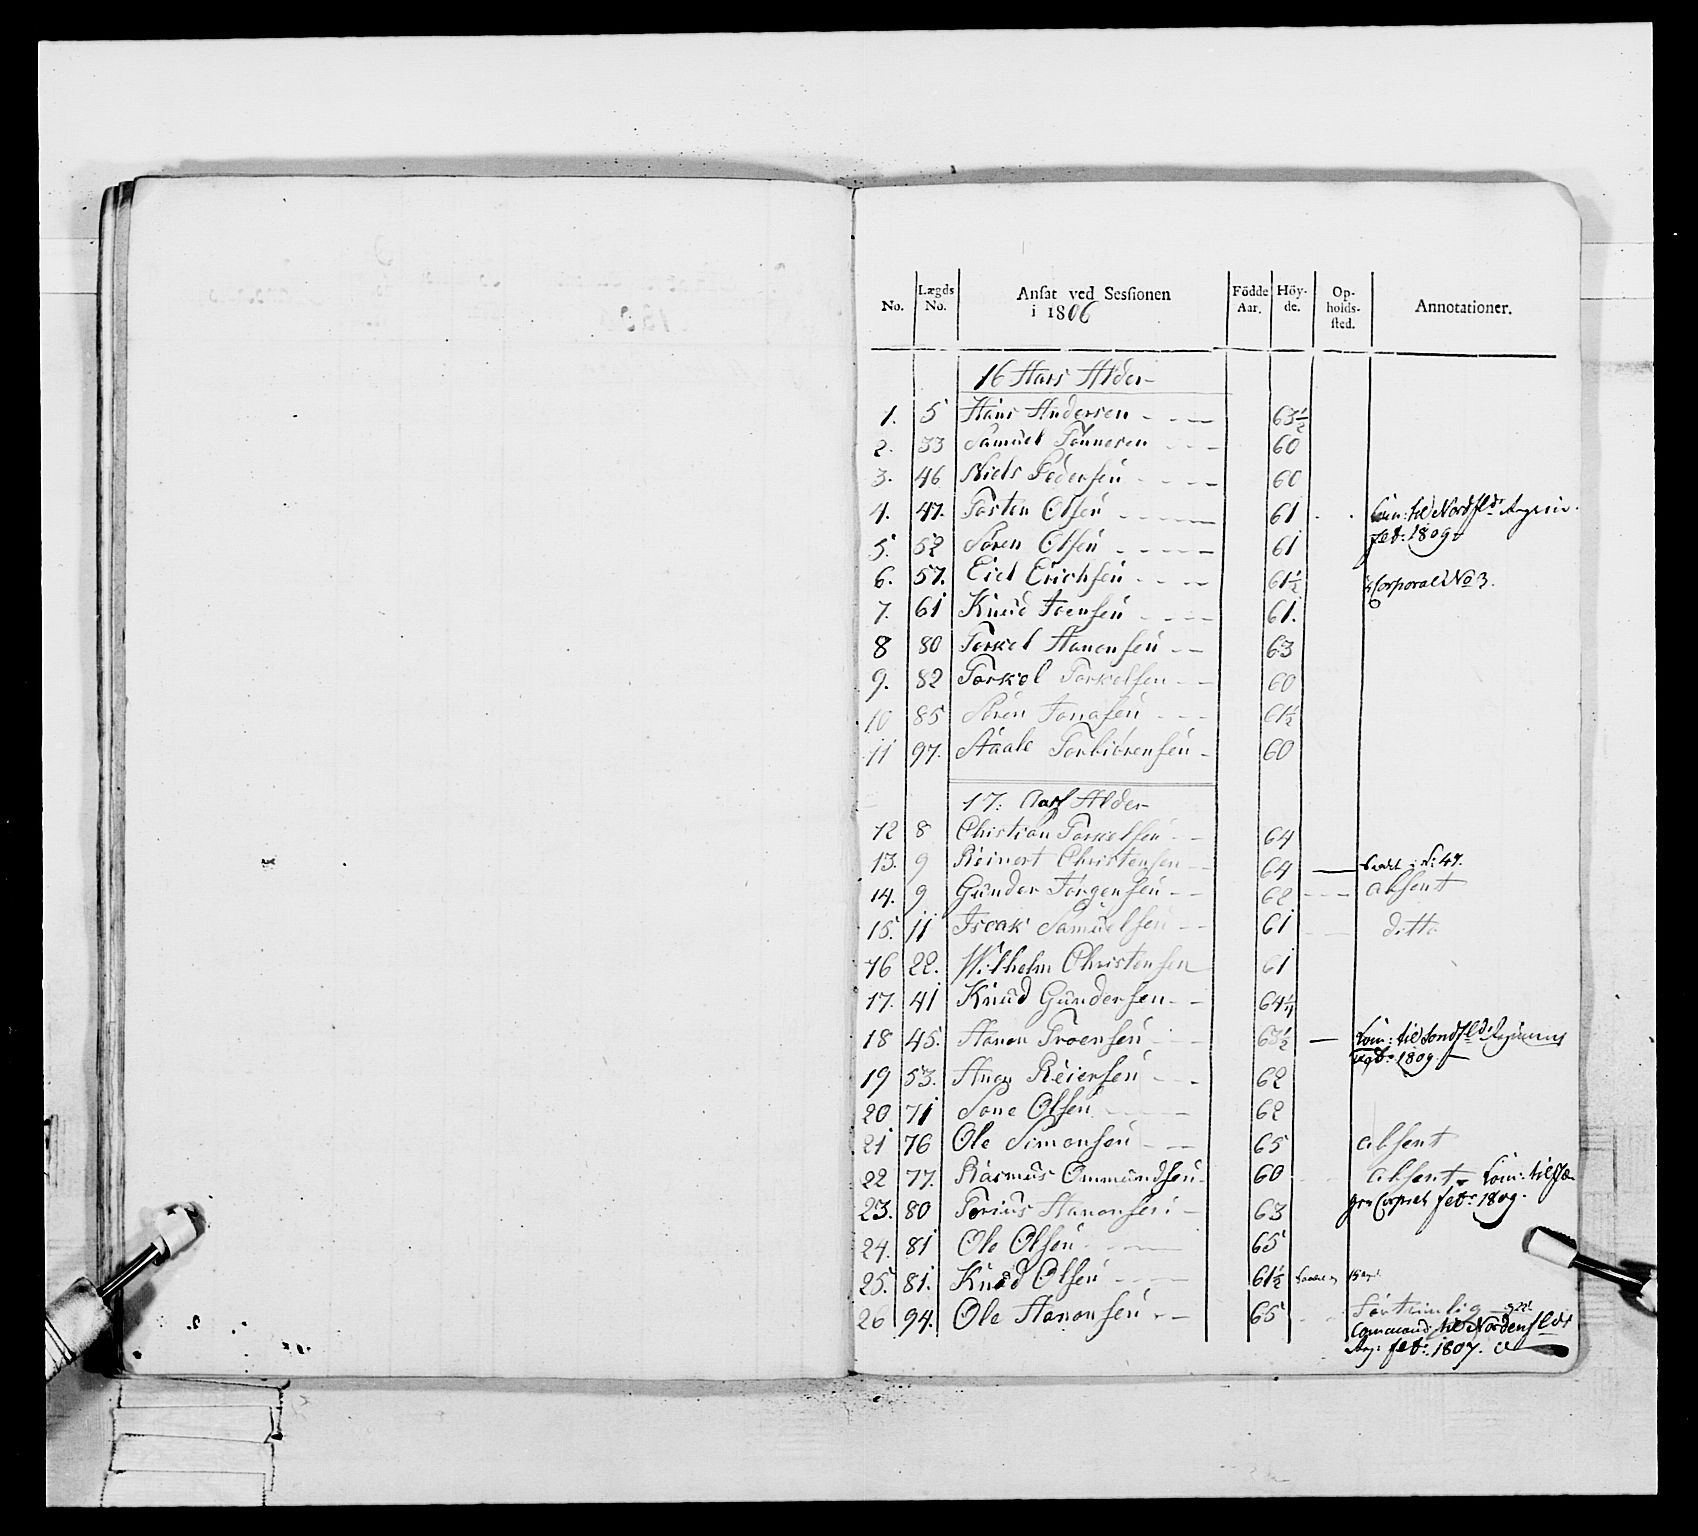 No. Lægds No. Ansat ved Sessionen i 1806 Födde Aar. Höyde. Opholdssted. Annotationer.
16 Aars Alder
1. 5 Hans Andersen 63½
2. 33 Samuel Tönnesen 60
3. 46 Niels Pedersen 60
4. 47. Torsten Olsen 61 til Nordfld
febr 1809
5. 52 Sören Olsen 61
6. 57. Eiel Erichsen 61½ Corporal No 3.
7. 61 Knud Joensen 61.
8 80 Torkel Hanensen 63
9. 82 Torkel Torkelsen 60
10 85 Sören Jonasen 61½
11 97. Aaale Torbiörensen 60
17: Aars Alder
12 8 Christian Torkelsen 64
13. 9 Reinert Christensen 64 47.
14. 9 Gunder Jörgensen 62 absent
15. 11 Iscak Samuelsen 61 ditto
16 22. Wilhelm Christensen 61
17. 41 Knud Gundersen 64¼
18 45. Hanen Troensen 63½ Com: til Söndfld Regiment
1809.
19 53. Anen Reiersen 62
20 71 Sone Olsen 62
21 76 Ole Simonsen 65 absent
22 77. Rasmus Ommundsen 60 absent Com: til Jæ-
23. 80 Torius Hanensen 63 ger Corpset febr 1809.
24. 81 Ole Olsen 65
25. 81. Knud Olsen 61½
26 94. Ole Hanonsen 65
Command: til Nordenfldske
Reg: febr. 1807.